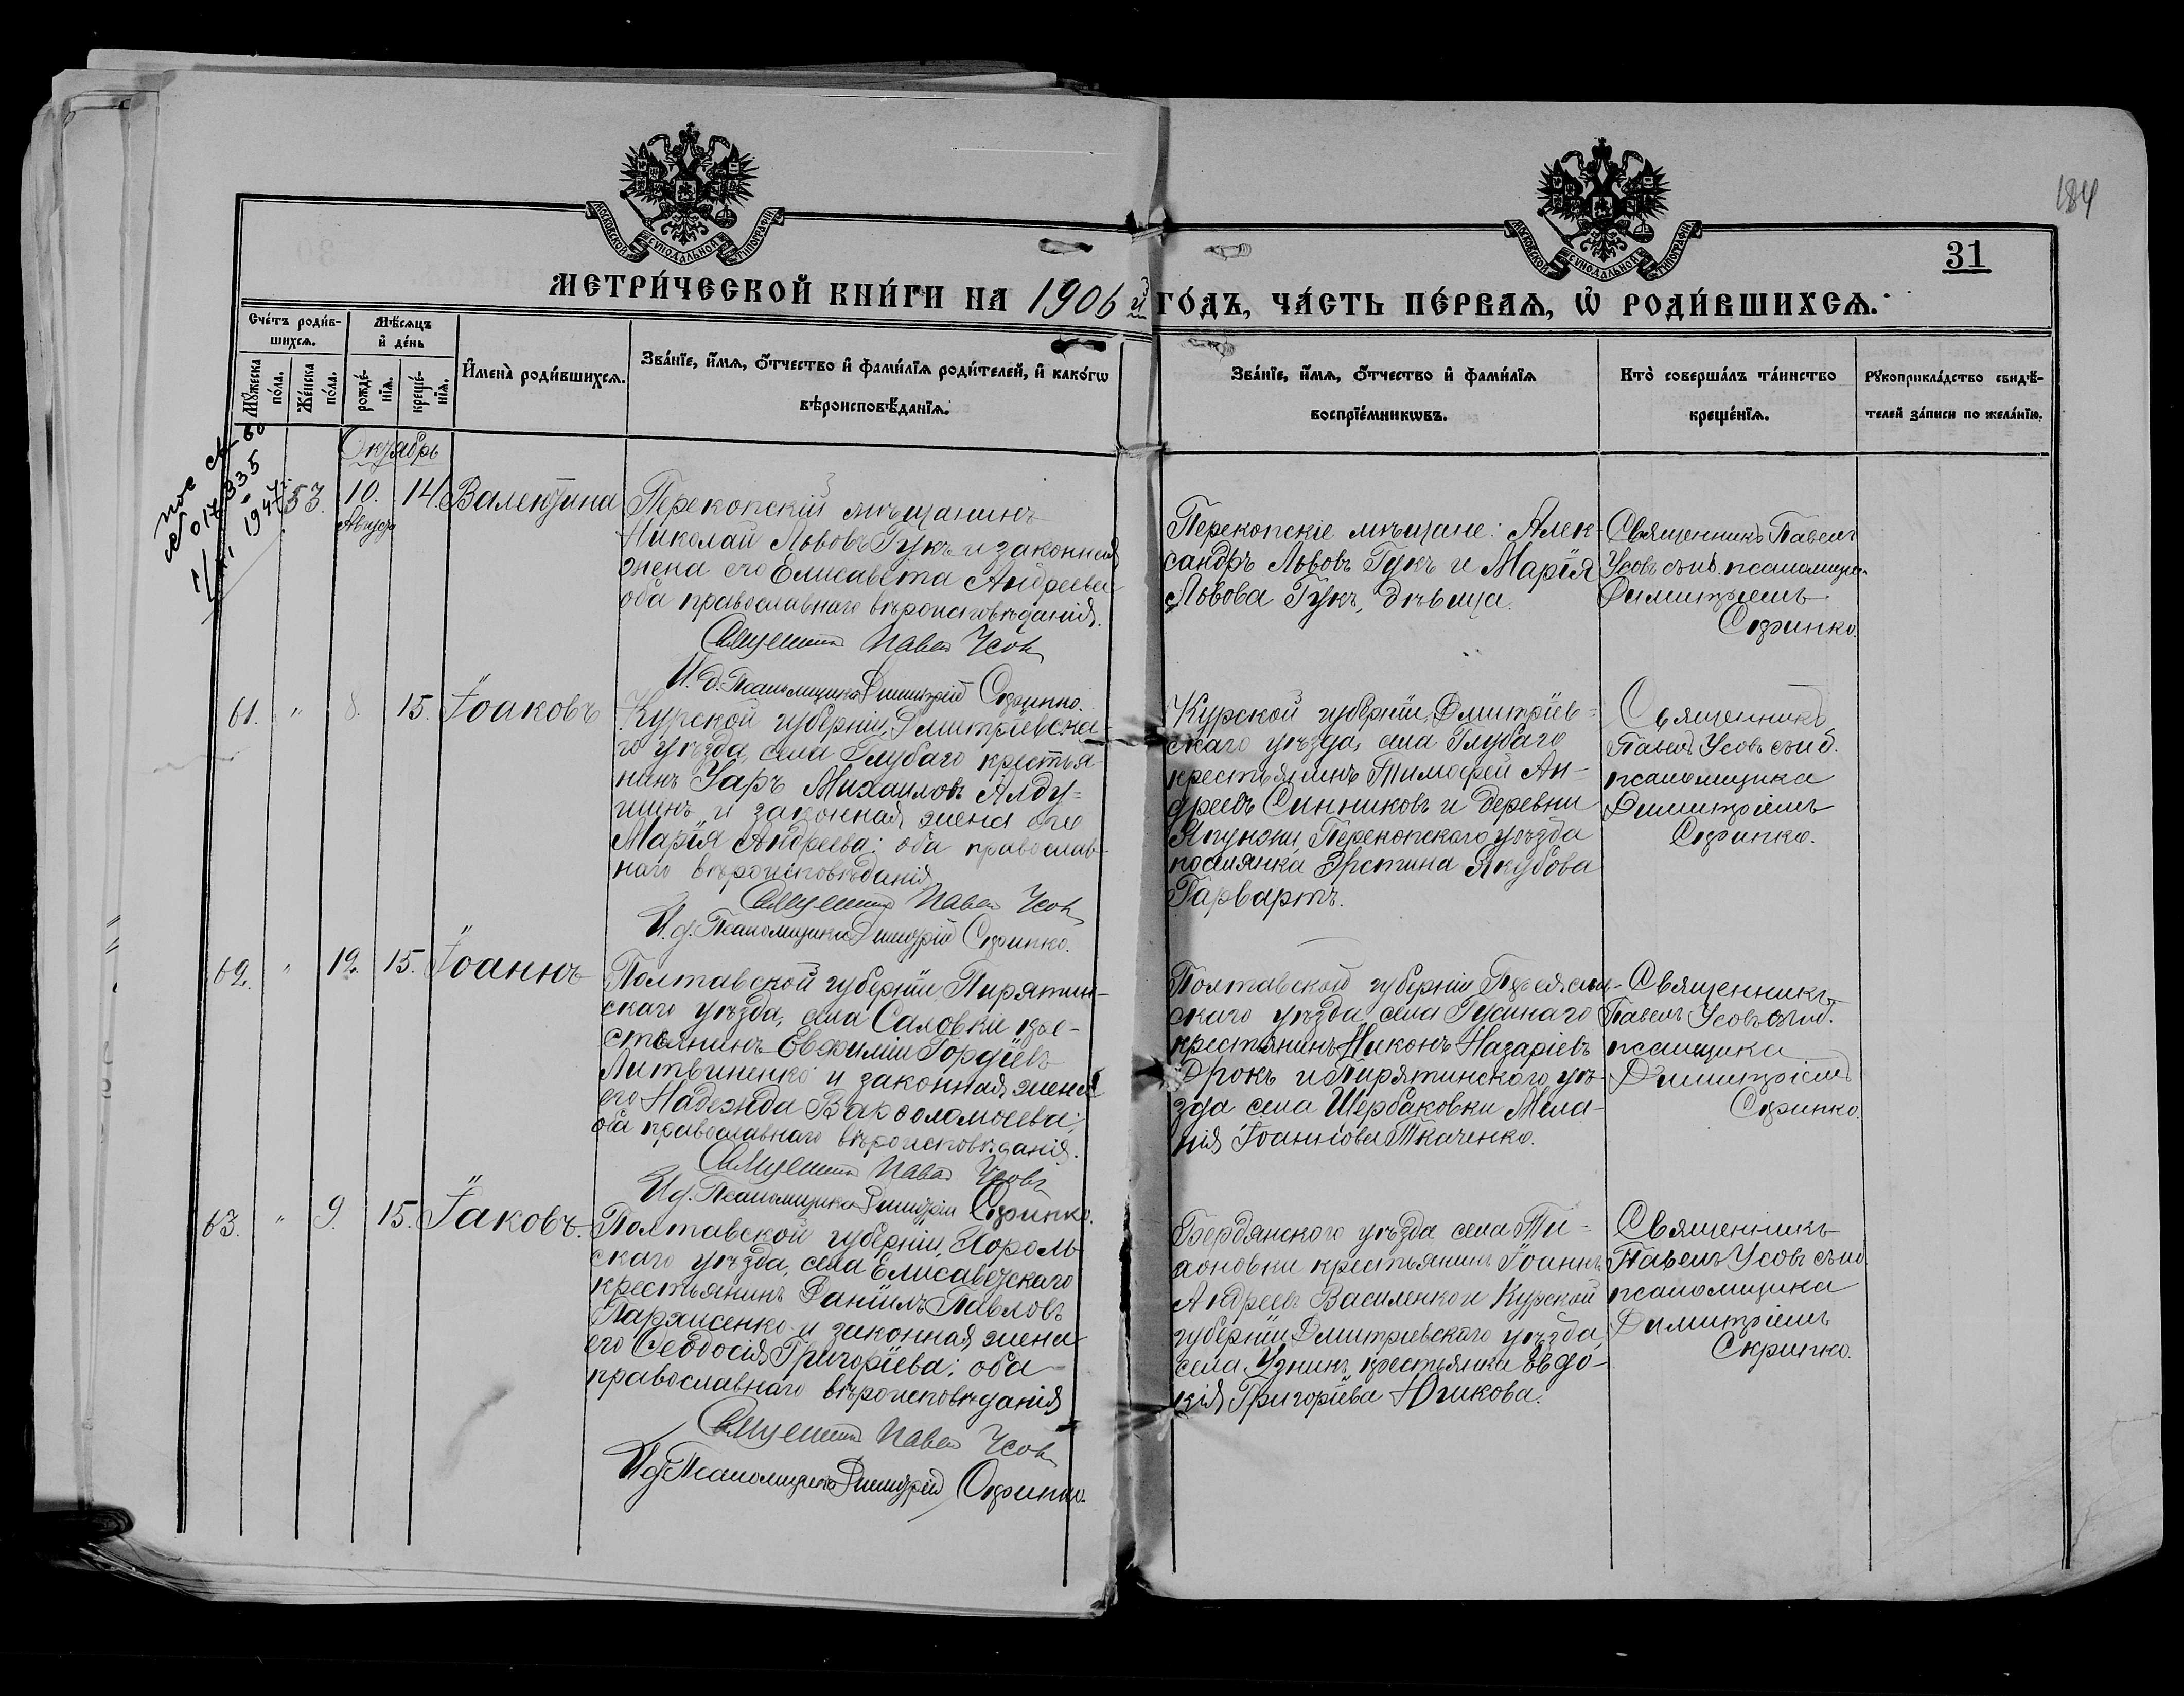 184
МОСКОВСКОЙ СУНОДАЛЬНОЙ ТИПОГРАФІИ
МОСКОВСКОЙ СУНОДАЛЬНОЙ ТИПОГРАФІИ
31
МЕТРИ́ЧЕСКОЙ КНИ́ГИ НА 1906 й ГО́ДЪ, ЧА́СТЬ ПЕ́РВАЯ, Ѡ҆ РОДИ́ВШИХСЯ.
Сче́тъ роди́в-
шихся.
Мѣ́сяцъ
и҆ де́нь
Мꙋ́жеска по́ла.
Же́нска по́ла.
рожде́-
нїя.
креще́-
нїя.
И҆мена̀ роди́вшихся.
Зва́нїе, и҆́мя, ѻ҆́тчество и҆ фами́лїя роди́телей, и҆ како́гѡ
вѣроисповѣ́данїя.
Зва́нїе, и҆́мя, ѻ҆́тчество и҆ фами́лїя
воспрїе́мникѡвъ.
Кто̀ соверша́лъ та́инство
креще́нїя.
Рꙋкоприкла́дство свидѣ́-
телей за́писи по жела́нїю.
1947
Октябрь
53.
10.
Августа
14.
Валентина
Перекопскій мѣщанинъ
Николай Львовъ Гукъ и законная
жена его Елисавета Андреева
оба православнаго вѣроисповѣданія.
Священникъ Павелъ Усовъ
И. д. Псаломщика Димитрій Скрипко.
Перекопскіе мѣщане: Алек-
сандръ Львовъ Гукъ и Марія
Львова Гукъ, дѣвица.
Священникъ Павелъ
Усовъ съ и.д. псаломщика
Димитріемъ
Скрипко.
61.
"
8.
15.
Іоаковъ
Курской губерніи, Дмитріевска-
го уѣзда, села Глубаго крестья-
нинъ Уаръ Михаиловъ Алду-
шинъ и законная жена его
Марія Андреева: оба православ-
наго вѣроисповѣданія
Священникъ Павелъ Усовъ
И.д. Псаломщика Димитрій Скрипко.
Курской губерніи, Дмитріев-
скаго уѣзда, села Глубаго
крестьянинъ Тимофей Ан-
дреевъ Синниковъ и деревни
Япунджи Перекопскаго уѣзда
поселянка Эрстина Якубова
Гарвартъ.
Священникъ
Павелъ Усовъ съ и.д.
псаломщика
Димитріемъ
Скрипко.
62.
"
12.
15.
Іоаннъ
Полтавской губерніи, Пирятин-
скаго уѣзда, села Саловки кре-
стьянинъ Евфимій Гордіевъ
Литвиненко и законная жена
его Надежда Варфоломеева:
оба православнаго вѣроисповѣданія.
Священникъ Павелъ Усовъ
И.д. Псаломщика Димитрій Скрипко.
Полтавской губерніи
скаго уѣзда села Гусинаго
крестьянинъ Никонъ Назаріевъ
Дрокъ и Пирятинскаго уѣ-
зда села Щербаковки Мела-
нія Іоаннова Ткаченко.
Священникъ
Павелъ Усовъ съ и.д.
псамщика
Димитріемъ
Скрипко.
63.
"
9.
15.
Іаковъ.
Полтавской губерніи, Хороль-
скаго уѣзда, села Елисаветскаго
крестьянинъ Даніилъ Павловъ
Пархисенко и законная жена
его Ѳеодосія Григоріева: оба
православнаго вѣроисповѣданія
Священникъ Павелъ Усовъ
И.д. Псаломщика Димитрій Скрипко.
Бердянскаго уѣзда села Ти-
хоновки крестьянинъ Іоаннъ
Андреевъ Василенко и Курской
губерніи, Дмитріевскаго уѣзда,
села крестьянка Евдо-
кія Григоріева Юшкова.
Священникъ
Павелъ Усовъ съ и.д.
псаломщика
Димитріемъ
Скрипко.